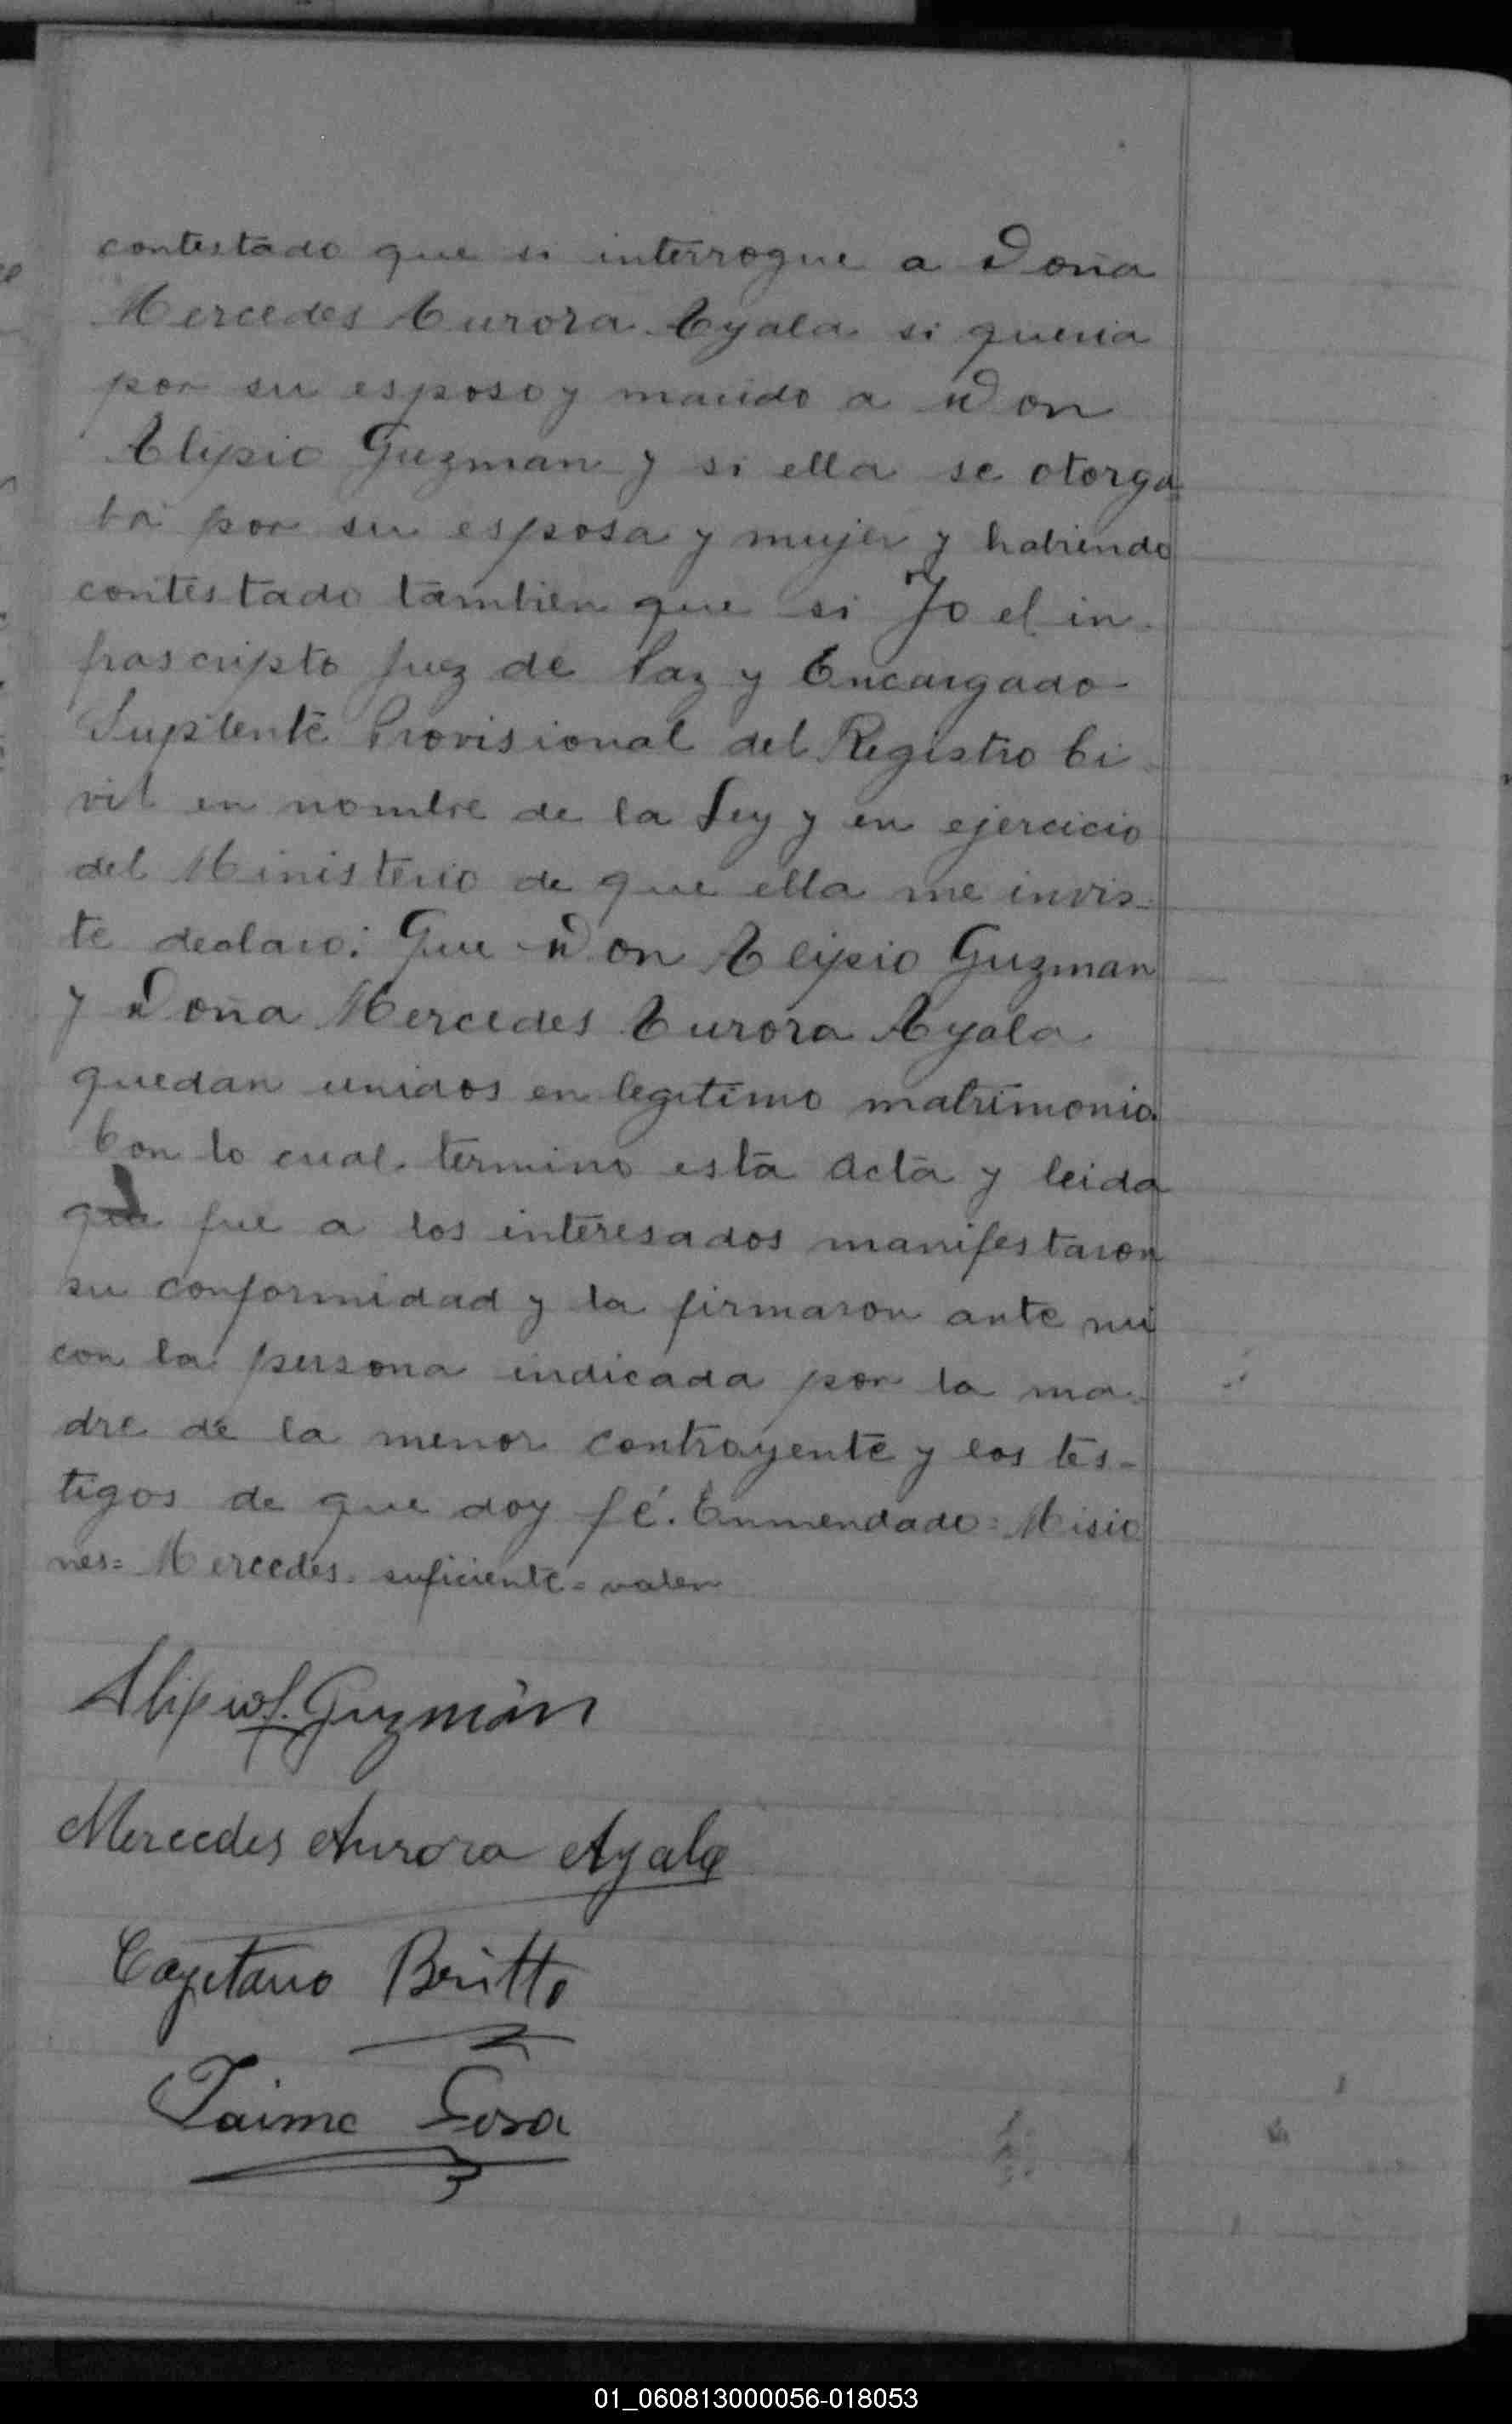 contestado que si interrogue a Doña
Mercedes Aurora Ayala si queria
por su esposo y marido a Don
Alipio Guzman y si ella se otorga
ba por su esposa y mujer y habiendo
contestado tambien que si Yo el in-
frascripto Juez de Paz y Encargado
Suplente Provisional del Registro Ci-
vil en nombre de la Ley y en ejercicio
del Ministerio de que ella me invis-
te declaro: Que Don Alipio Guzman
y Doña Mercedes Aurora Ayala
quedan unidos en legitimo matrimonio.
Con lo cual termino esta acta y leida
que fue a los interesados manifestaron
su conformidad y la firmaron ante mi
con la persona indicada por la ma-
dre de la menor contrayente y los tes-
tigos de que doy fé. Enmendado = Misio
nes = Mercedes = suficiente = valen
Alipio Guzmán
Mercedes Aurora Ayala
Cayetano Britto
Jaime Sosa
01_060813000056-018053